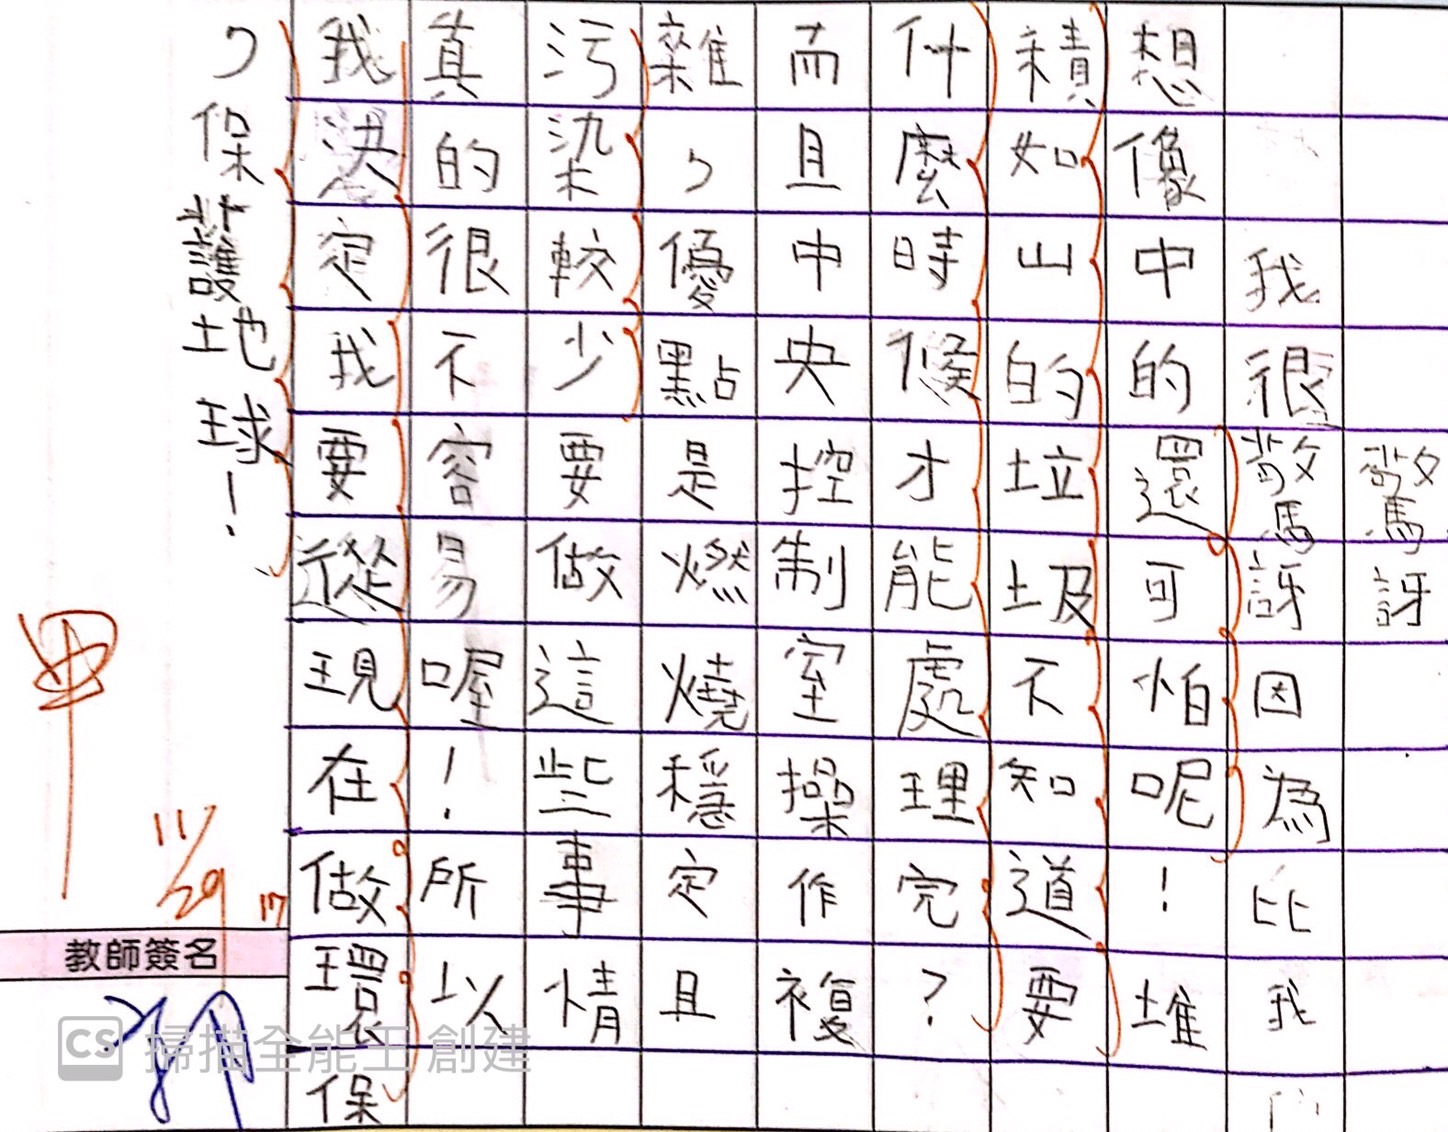 驚訝
我很驚訝因為比我
想像中的還可怕呢！堆
積如山的垃圾不知道要
什麼時候才能處理完？
而且中央控制室操作複
雜，優點是燃燒穩定且
污染較少要做這些事情
真的很不容易喔！所以
我決定我要從現在做環保
，保護地球！
甲
11/29
教師簽名
CS 掃描全能王 創建